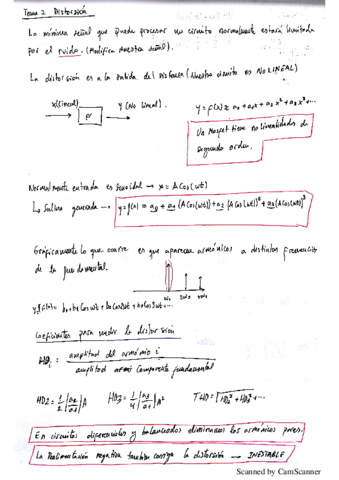 Tema 2. Distorsión
La mínima señal que puede procesar un circuito normalmente estará limitada
por el ruido. (Modifica nuestra señal).
La distorsión es a la salida del sistema (Nuestro circuito es NO LINEAL)
x(lineal) y (No lineal).
y = f(x) ≈ a₀ + a₁x + a₂x² + a₃x³ + ...
Un Mosfet tiene no linealidades de
segundo orden.
Normalmente entrada es senoidal → x = A cos(wt)
↳ Salida generada → y = f(x) = a₀ + a₁ (A cos(wt)) + a₂ (A cos(wt))² + a₃ (A cos(wt))³
Gráficamente lo que ocurre es que aparecen armónicos a distintas frecuencias
de la fundamental.
y = f(x) = b₀ + b₁ cos wt + b₂ cos 2wt + b₃ cos 3wt + ...
Coeficientes para medir la distorsión
HDᵢ = amplitud del armónico i / amplitud componente fundamental
HD2 = 1/2 |a₂/a₁| A HD3 = 1/4 |a₃/a₁| A² THD = √HD₂² + HD₃² + ...
En circuitos diferenciales y balanceados eliminamos los armónicos pares.
La realimentación negativa también corrige la distorsión → INESTABLE
Scanned by CamScanner